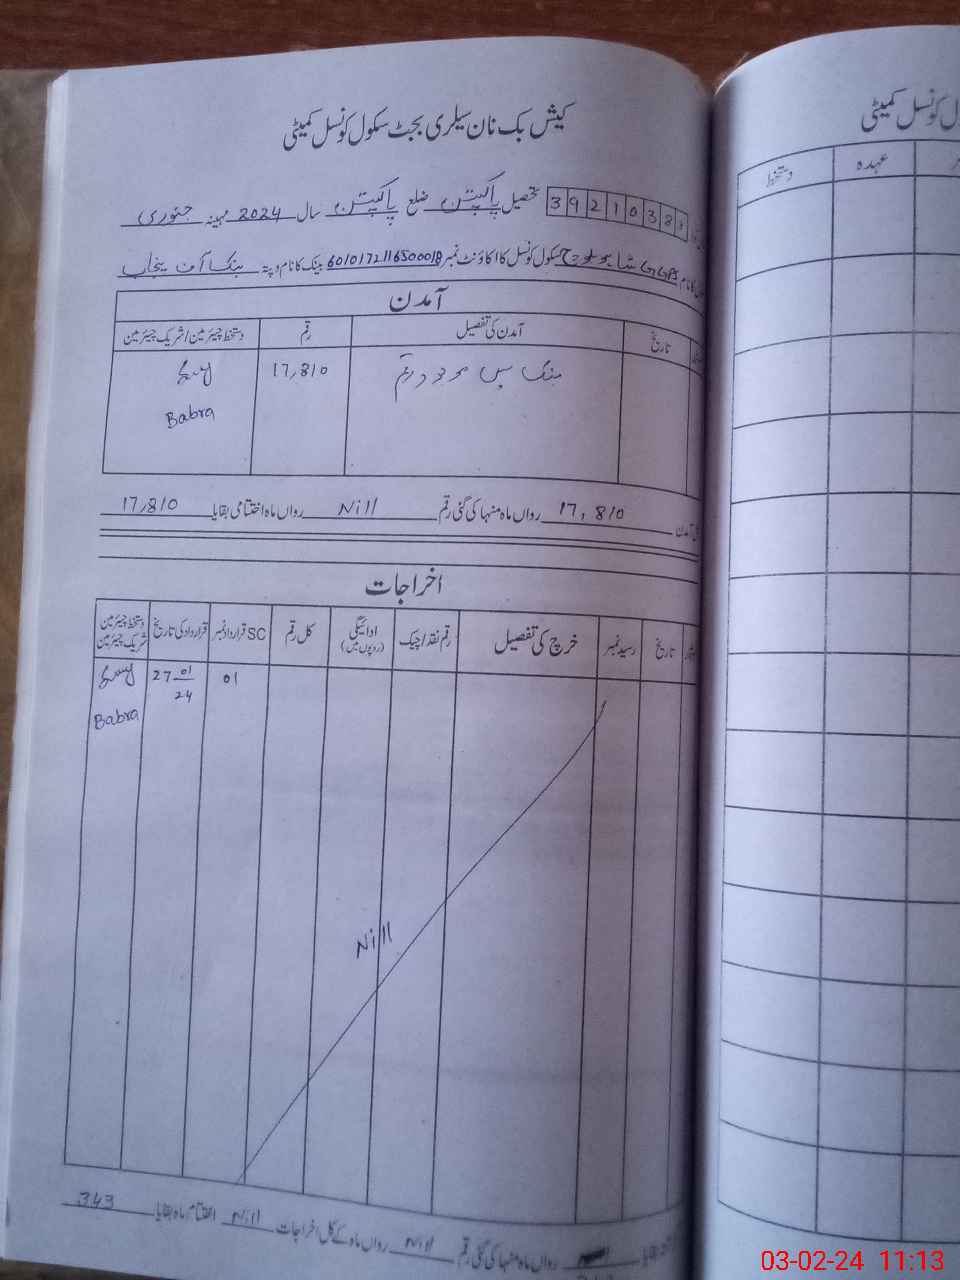 کیش بک نان سیلری بجٹ سکول کونسل کمیٹی
3 9 2 1 0 3 8 تحصیل پاکپتن ضلع پاکپتن سال 2024 مہینہ جنوری
کا نام GGPS سکول کونسل کا اکاؤنٹ نمبر بینک کا نام و پتہ بنک آف پنجاب
آمدن
تاریخ آمدن کی تفصیل رقم دستخط چیئرمین/شریک چیئرمین
بنک میں موجود رقم 17,810
Babra
آمدن 17,810 رواں ماہ منہا کی گئی رقم Nill رواں ماہ اختتامی بقایا 17,810
اخراجات
تاریخ رسید نمبر خرچ کی تفصیل رقم نقد/چیک ادائیگی (روپوں میں) کل رقم SC قرارداد نمبر قرارداد کی تاریخ دستخط چیئرمین شریک چیئرمین
01 27 01/24
Babra
Nill
رواں ماہ منہا کی گئی رقم Nill رواں ماہ کے کل اخراجات Nill اختتام ماہ بقایا 343
کونسل کمیٹی
عہدہ دستخط
03-02-24 11:13